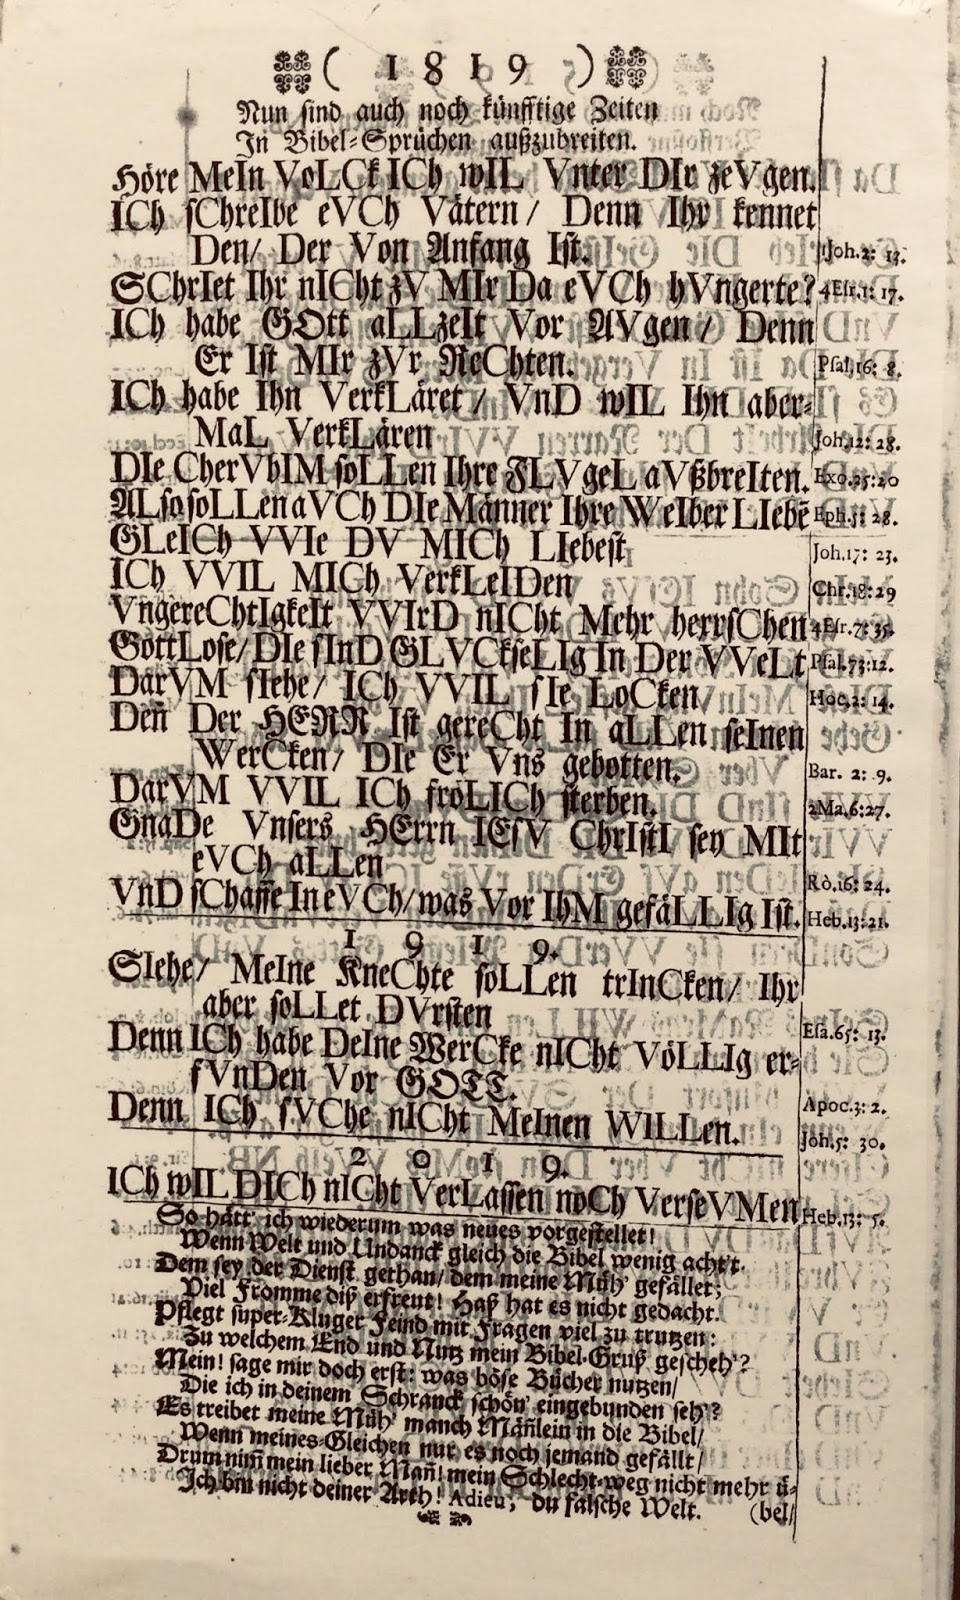 ( 1819 )
Nun sind auch noch künfftige Zeiten
In Bibel-Sprüchen außzubreiten.
Höre MeIn VoLCk ICh wIL Vnter DIr zeVgen.
ICh sChreIbe eVCh Vätern / Denn Ihr kennet
Den / Der Von Anfang Ist. 1Joh.2: 13.
SChrIet Ihr nICht zV MIr Da eVCh hVngerte? 4Esr.1: 17.
ICh habe GOtt aLLzeIt Vor AVgen / Denn
Er Ist MIr zVr ReChten. Psal.16: 8.
ICh habe Ihn VerkLäret / VnD wIL Ihn aber-
MaL VerkLären Joh.12: 28.
DIe CherVbIM soLLen Ihre FLVgeL aVßbreIten. Exo.25:20
ALso soLLen aVCh DIe Männer Ihre WeIber LIebē Eph.5: 28.
GLeICh VVIe DV MICh LIebest Joh.17: 23.
ICh VVIL MICh VerkLeIDen Chr.18:29
VngereChtIgkeIt VVIrD nICht Mehr herrsChen 4Esr.7:35.
GottLose / DIe sInD GLVCkseLIg In Der VVeLt Psal.73:12.
DarVM sIehe / ICh VVIL sIe LoCken Hoc.2: 14.
Deñ Der HERR Ist gereCht In aLLen seInen
WerCken / DIe Er Vns gebotten. Bar. 2: 9.
DarVM VVIL ICh fröLICh sterben. 2Ma.6:27.
GnaDe Vnsers HErrn IEsV ChrIstI sey MIt
eVCh aLLen Rö.16: 24.
VnD sChaffe In eVCh / was Vor IhM gefäLLIg Ist. Heb.13:21.
1919.
SIehe / MeIne KneChte soLLen trInCken / Ihr
aber soLLet DVrsten Esa.65: 13.
Denn ICh habe DeIne WerCke nICht VöLLIg er-
fVnDen Vor GOTT. Apoc.3: 2.
Denn ICh sVChe nICht MeInen WILLen. Joh.5: 30.
2019.
ICh wIL DICh nICht VerLassen noCh VerseVMen Heb.13: 5.
So hätt' ich wiederum was neues vorgestellet!
Wenn Welt und Undanck gleich die Bibel wenig acht't.
Dem sey der Dienst gethan / dem meine Müh' gefället;
Viel Fromme diß erfreut! Haß hat es nicht gedacht.
Pflegt super-Kluger Feind mit Fragen viel zu trutzen:
Zu welchem End und Nutz mein Bibel-Gruß gescheh'?
Mein! sage mir doch erst: was böse Bücher nutzen /
Die ich in deinem Schranck schön' eingebunden seh'?
Es treibet meine Müh' manch Mäñlein in die Bibel /
Wenn meines-Gleichen nur es noch jemand gefällt /
Drum nim̄ mein lieber Mañ! mein Schlecht-weg nicht mehr ü-
Ich bin nicht deiner Arth! Adieu, du falsche Welt. (bel /